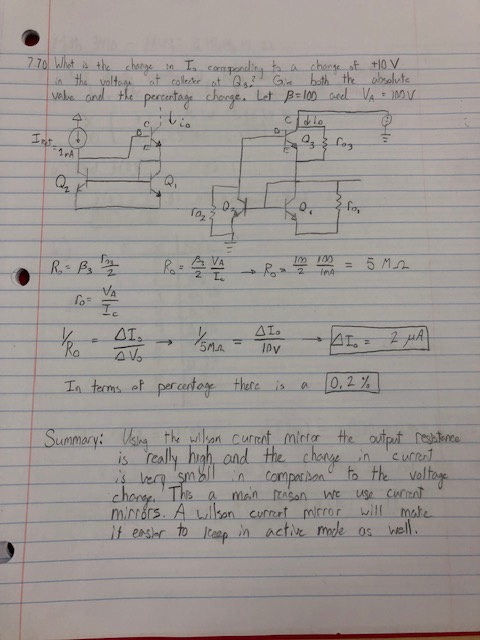 7.70 What is the change in Io corresponding to a change of +10 V
in the voltage at collector at Q3? Give both the absolute
value and the percentage change. Let β=100 and VA = 100V
Iref=1mA
C
B
E
↓io
Q2
Q1
C
↓io
B
E
Q3
ro3
ro2
Q2
Q1
ro1
Ro = β3 ro3/2
Ro = β3/2 VA/Ic → Ro = 100/2 100/1mA = 5 MΩ
ro = VA/Ic
1/Ro = ΔIo/ΔVo → 1/5MΩ = ΔIo/10V → ΔIo = 2 μA
In terms of percentage there is a 0.2 %
Summary: Using the wilson current mirror the output resistance
is really high and the change in current
is very small in comparison to the voltage
change. This a main reason we use current
mirrors. A wilson current mirror will make
it easier to keep in active mode as well.